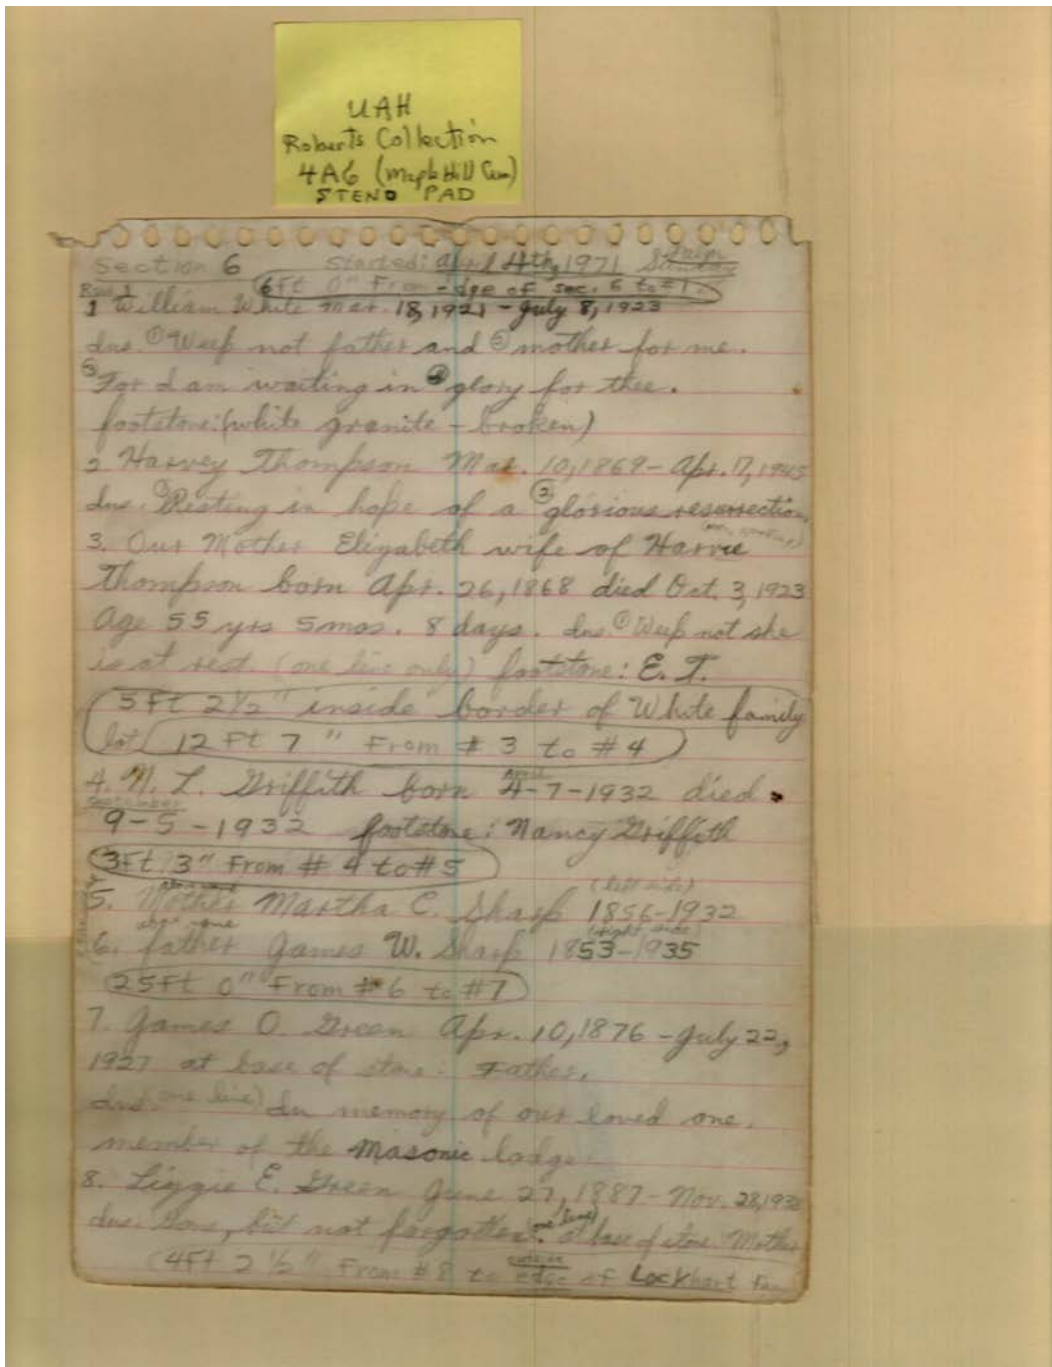 UAH
Roberts Collection
4A6 (Maple Hill Cem)
STENO PAD
Section 6 Started: April 4th, 1971 Sunday
6ft 0" From edge of sec. 6 to #1.
Row 1
1 William White Mar. 18, 1921 - July 8, 1923
Ins. ① Weep not father and ② mother for me.
③ For I am waiting in ④ glory for thee.
footstone: (white granite - broken)
2. Harvey Thompson Mar. 10, 1869 - Apr. 17, 1945
Ins. ① Resting in hope of a ② glorious resurrection.
3. Our Mother Elizabeth wife of Harvie
Thompson born Apr. 26, 1868 died Oct. 3, 1923
Age 55 yrs 5 mos. 8 days. Ins. ① Weep not she
is at rest. (one line only) footstone: E. T.
5ft 2½" inside border of White family
lot 12 Ft 7" From #3 to #4
April
4. N. L. Griffith born 4-7-1932 died
September
9-5-1932 footstone: Nancy Griffith
3Ft 3" From #4 to #5
(left side)
5. Mother Martha C. Sharp 1856-1932
(right side)
6. father James W. Sharp 1853-1935
25ft 0" From #6 to #7
7. James O. Green Apr. 10, 1876 - July 22,
1927 at base of stone: Father.
Ins. (one line) In memory of our loved one.
member of the Masonic lodge.
8. Lizzie E. Green June 27, 1887 - Nov. 28, 1938
Ins. Gone, but not forgotten. (one line) at base of stone: Mother
outside
(4Ft 2½" From #8 to edge of Lockhart Fam